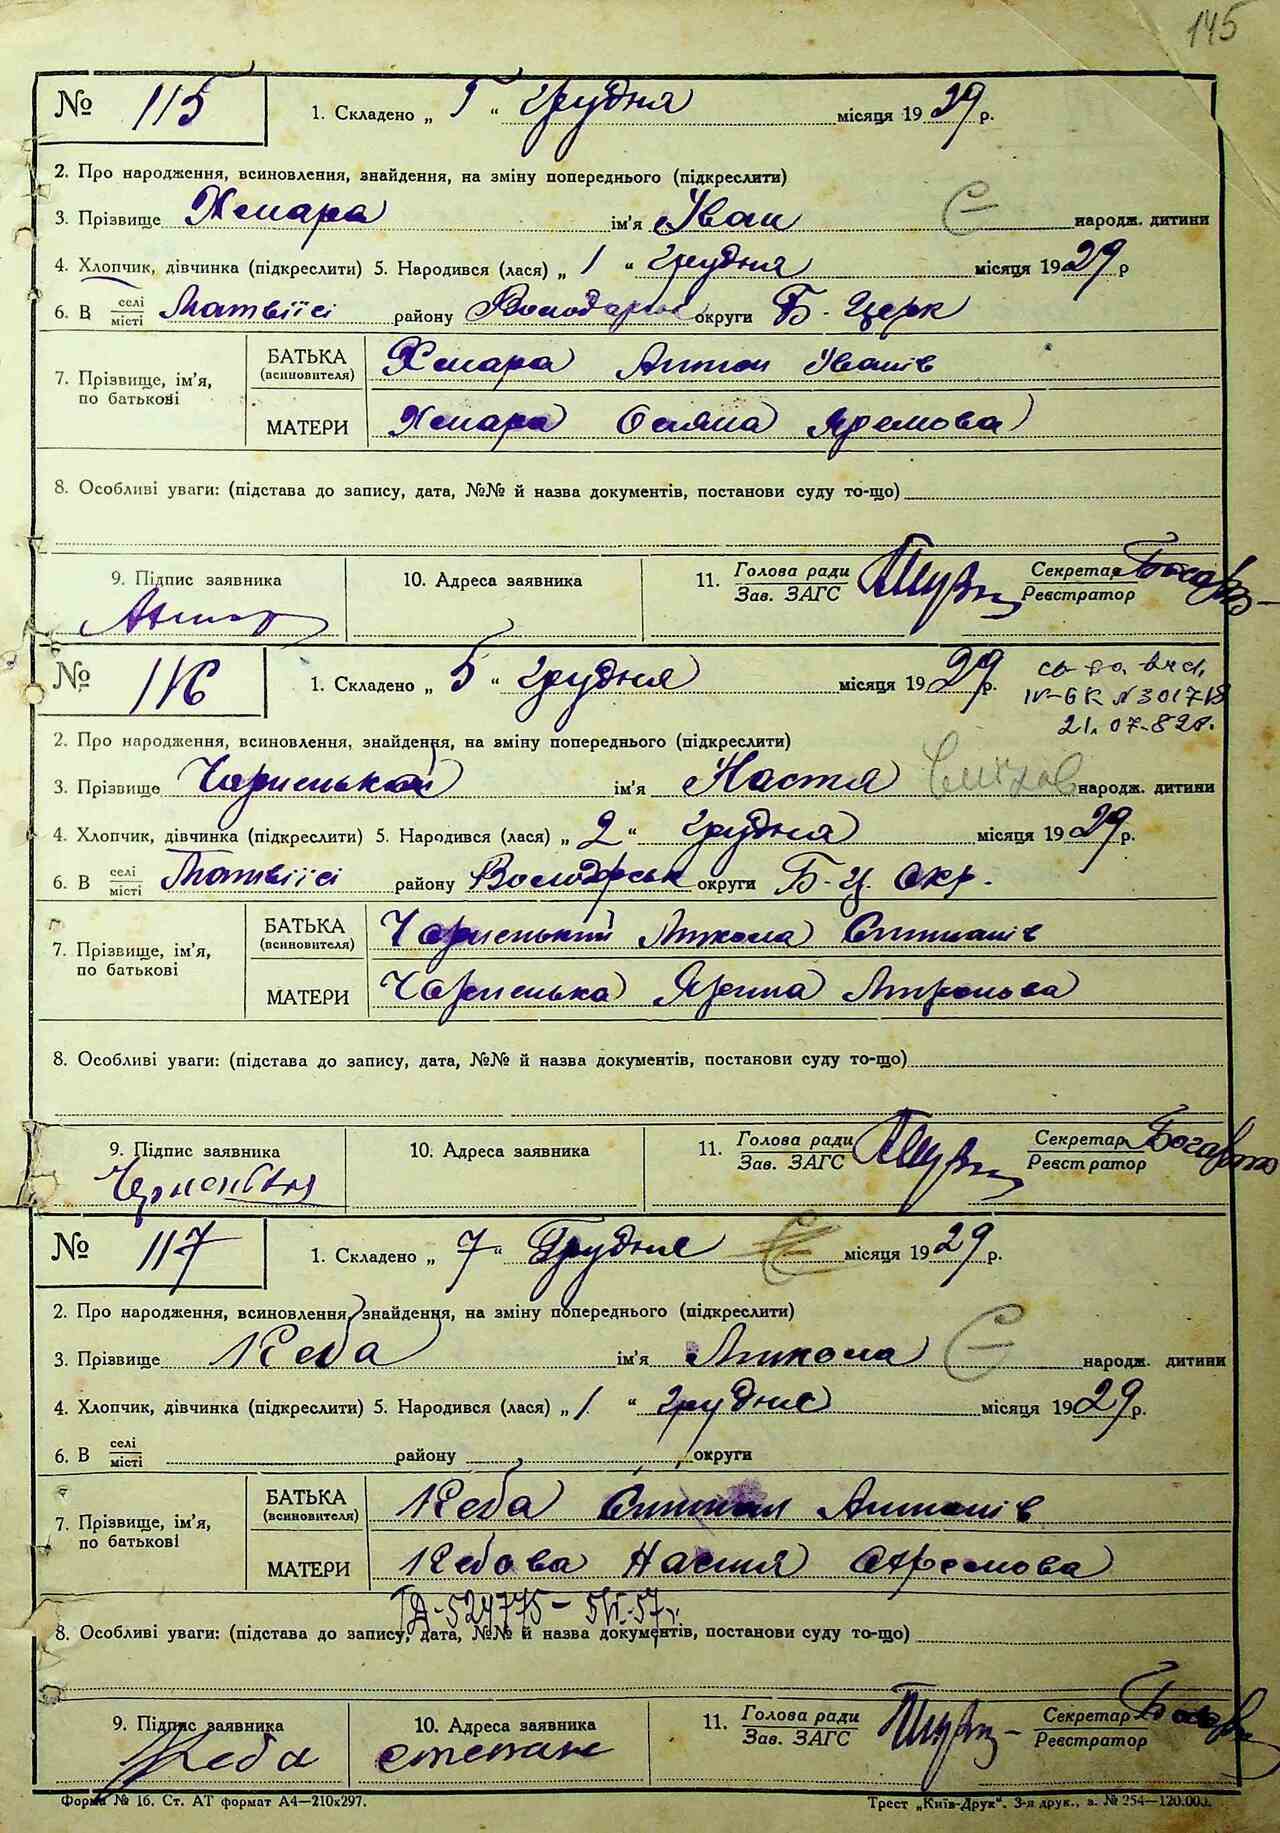 145
№ 115 1. Складено „ 5 “ Грудня місяця 1929 р.
2. Про народження, всиновлення, знайдення, на зміну попереднього (підкреслити)
3. Прізвище Хмара ім'я Іван народж. дитини
4. Хлопчик, дівчинка (підкреслити) 5. Народився (лася) „ 1 “ грудня місяця 1929 р
6. В селі/місті Матвіїсі району Володарськ округи Б-Церк
7. Прізвище, ім'я, по батькові БАТЬКА (всиновителя) Хмара Антон Іванів
МАТЕРИ Хмара Осяна Яремова
8. Особливі уваги: (підстава до запису, дата, №№ й назва документів, постанови суду то-що)
9. Підпис заявника 10. Адреса заявника 11. Голова ради / Зав. ЗАГС Секретар / Реєстратор
№ 116 1. Складено „ 5 “ грудня місяця 1929 р.
IV-БК N 301718
21.07.82г.
2. Про народження, всиновлення, знайдення, на зміну попереднього (підкреслити)
3. Прізвище Чорненькой ім'я Настя народж. дитини
4. Хлопчик, дівчинка (підкреслити) 5. Народився (лася) „ 2 “ грудня місяця 1929 р.
6. В селі/місті Матвіїсі району Володарськ округи Б-Ц. Окр.
7. Прізвище, ім'я, по батькові БАТЬКА (всиновителя) Чорненький Микола Степанів
МАТЕРИ Чорненька Ярина Миронова
8. Особливі уваги: (підстава до запису, дата, №№ й назва документів, постанови суду то-що)
9. Підпис заявника 10. Адреса заявника 11. Голова ради / Зав. ЗАГС Секретар / Реєстратор
№ 117 1. Складено „ 7 “ Грудня місяця 1929 р.
2. Про народження, всиновлення, знайдення, на зміну попереднього (підкреслити)
3. Прізвище Кеба ім'я Микола народж. дитини
4. Хлопчик, дівчинка (підкреслити) 5. Народився (лася) „ 1 “ грудня місяця 1929 р.
6. В селі/місті району округи
7. Прізвище, ім'я, по батькові БАТЬКА (всиновителя) Кеба Степан Антонів
МАТЕРИ Кебова Настя Охремова
ГД-524775 – 5/VI-57г.
8. Особливі уваги: (підстава до запису, дата, №№ й назва документів, постанови суду то-що)
9. Підпис заявника 10. Адреса заявника 11. Голова ради / Зав. ЗАГС Секретар / Реєстратор
Кеба степан
Форма № 16. Ст. АТ формат А4—210х297. Трест „Київ-Друк“. 3-я друк., з. № 254—120.000.